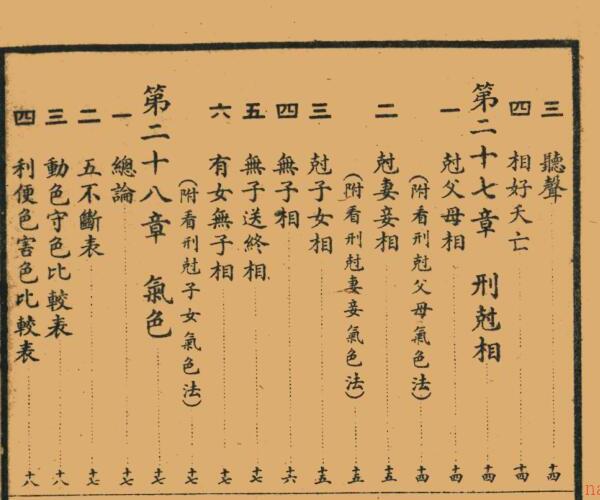 三 聽聲 十四
四 相好夭亡 十四
第二十七章 刑尅相 十四
一 尅父母相 十四
(附看刑尅父母氣色法) 十四
二 尅妻妾相 十五
(附看刑尅妻妾氣色法) 十五
三 尅子女相 十五
四 無子相 十六
五 無子送終相 十七
六 有女無子相 十七
(附看刑尅子女氣色法) 十七
第二十八章 氣色 十七
一 總論 十七
二 五不斷表 十七
三 動色守色比較表 十八
四 利便色害色比較表 十八